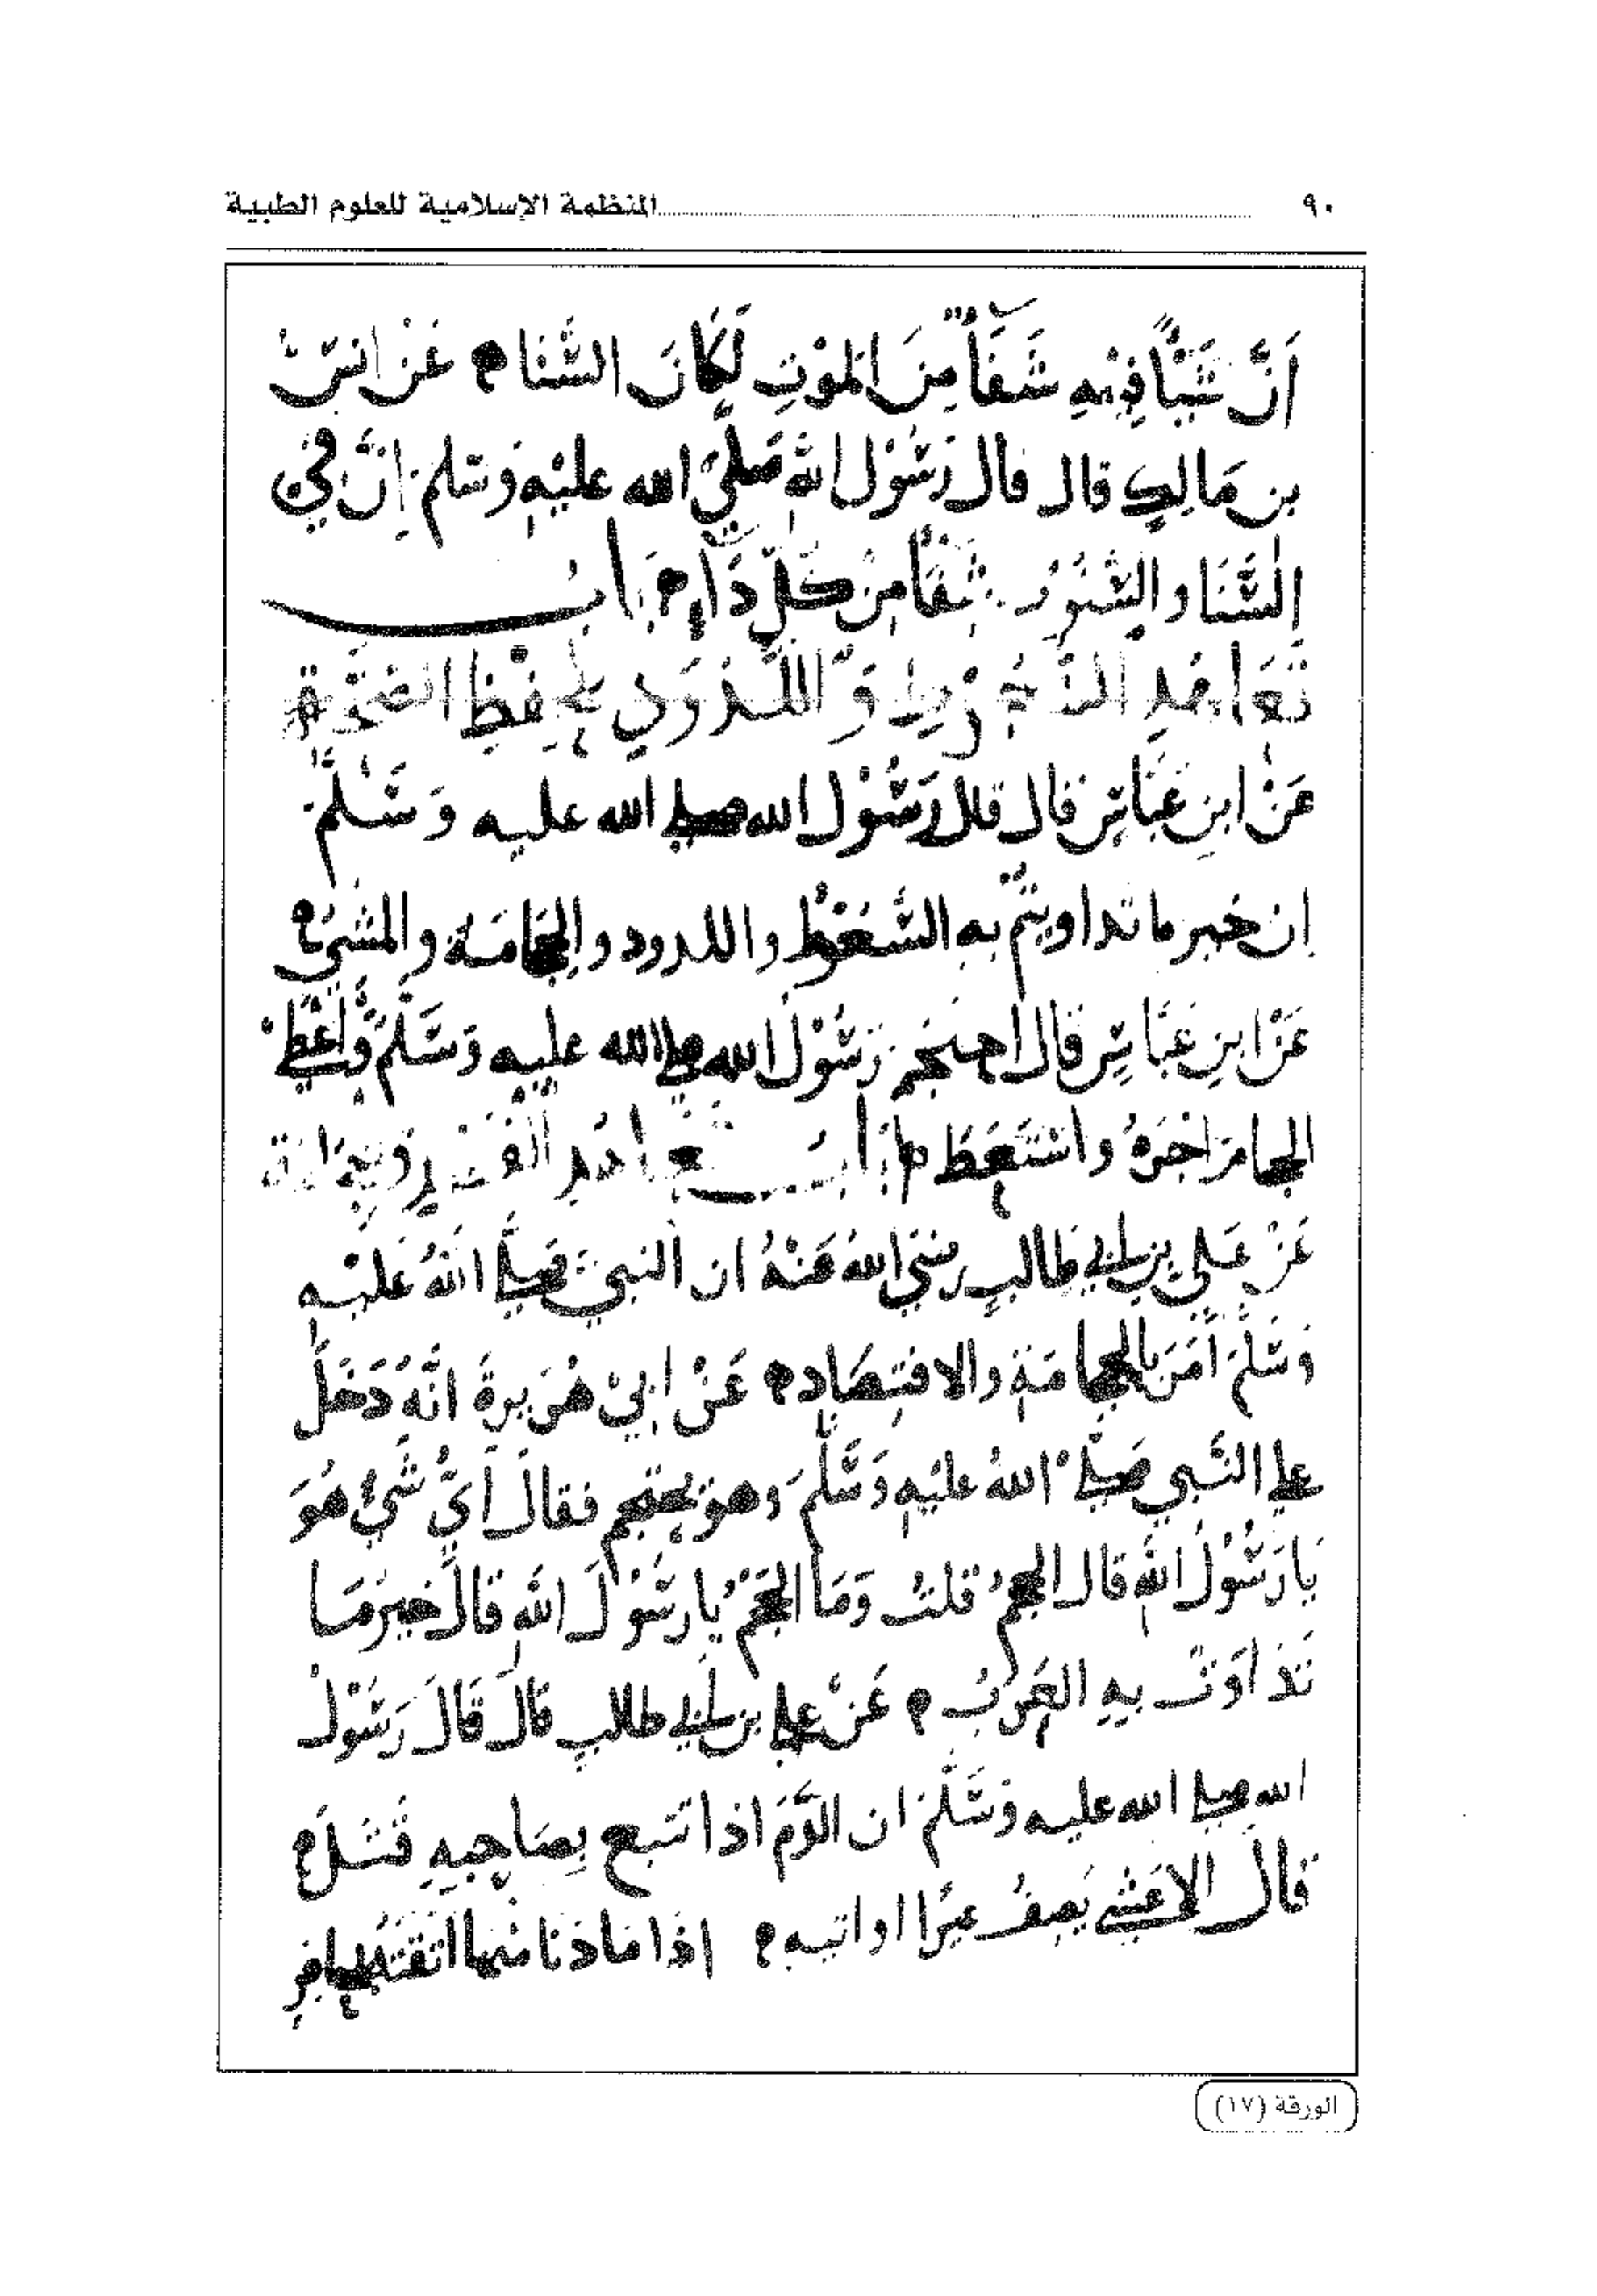 ٩٠ المنظمة الإسلامية للعلوم الطبية
اَنَّ شَيْئًا فِيْهِ شَفَآً مِنَ المَوْتِ لَكَانَ السَّنَا ه عَنْ انسْ
بن مَالِكٍ قال قال رَسُوْل اللهِ صَلىَّ الله عليْهِ وَسلم اِنَّ فيْ
السَّنَا والسَّنُوْر شِفَآً مِنْ كُلِّ دَآءٍ ه بَابُ
تَعَاهُدِ وَاللَّدُوْدِ لحِفْظِ الصِّحَّةِ
عَنْ ابنِ عَبَّاسٍ قال قال رَسُوْل الله صلى الله عليه وَسَلَّمَ
اِن خير ما تداويتُم بهِ السَّعُوْطُ واللدود والحِجَامَة والمَشِيُّ ه
عَنْ ابنِ عَبَّاسٍ قَال احتجَم رَسُوْلُ الله صلى الله عليه وَسَلَّمَ وَاَعْطَى
الحجامَ اَجْرَهُ واسْتَعَطَ ه بَابُ تعاهُد
عَنْ عَلي بن ابي طالبٍ رضيَ اللهُ عَنْهُ ان النبيَّ صَلىَّ اللهُ عَليْه
وَسَلَّمَ اَمَرَ بالحجامَة والافتِصَاد ه عَنْ ابيْ هُرَيرةَ انَّهُ دَخَلَ
على النَّبي صَلىَّ اللهُ عليْهِ وَسَلَّمَ وهو يحتجم فقالَ اَيُّ شَيْءٍ هُوَ
يَا رَسُوْلَ اللهِ قال الحجمُ قلتُ وَمَا الحَجْمُ يا رَسُوْلَ اللهِ قالَ خيْرُ مَا
تَدَاوَتْ بهِ العَرَبُ ه عَنْ على بن ابي طالبٍ قالَ قَالَ رَسُوْلُ
الله صلى الله عليه وَسَلَّمَ ان الدَّمَ اذا تبيغ بِصَاحبهِ قَتَلَهُ
قالَ الاعشى يَصِفُ عيرًا او اتنه ه اذَا مَا دَنَا منها اتقتهُ بحافرٍ
الورقة (١٧)